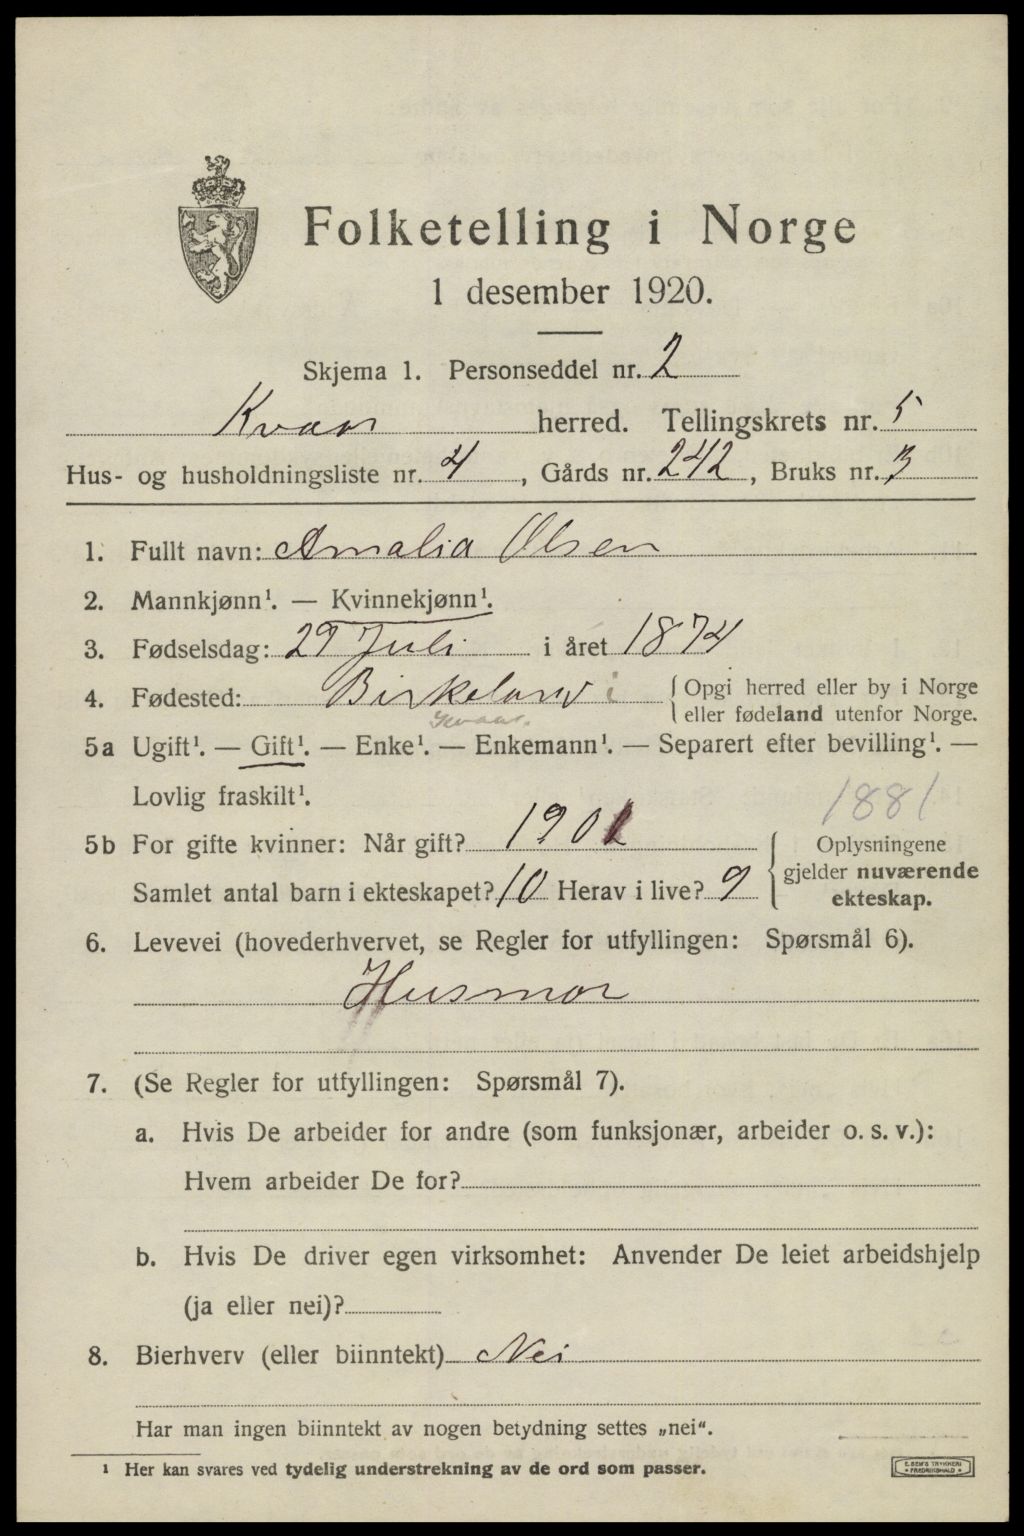 Folketelling i Norge
1 desember 1920.
Skjema 1. Personseddel nr. 2
Kvaas herred. Tellingskrets nr. 5
Hus- og husholdningsliste nr. 4, Gårds nr. 242, Bruks nr. 3
1. Fullt navn: Amalia Olsen
2. Mannkjønn¹. — Kvinnekjønn¹.
3. Fødselsdag: 29 Juli i året 1874
4. Fødested: Birkeland i {Opgi herred eller by i Norge
Kvaas. eller fødeland utenfor Norge.
5a Ugift¹. — Gift¹. — Enke¹. — Enkemann¹. — Separert efter bevilling¹. —
Lovlig fraskilt¹.
1881
5b For gifte kvinner: Når gift? 190 Oplysningene
Samlet antal barn i ekteskapet? 10 Herav i live? 9 gjelder nuværende
ekteskap.
6. Levevei (hovederhvervet, se Regler for utfyllingen: Spørsmål 6).
Husmor
7. (Se Regler for utfyllingen: Spørsmål 7).
a. Hvis De arbeider for andre (som funksjonær, arbeider o. s. v.):
Hvem arbeider De for?
b. Hvis De driver egen virksomhet: Anvender De leiet arbeidshjelp
(ja eller nei)?
8. Bierhverv (eller biinntekt) Nei
Har man ingen biinntekt av nogen betydning settes „nei“.
¹ Her kan svares ved tydelig understrekning av de ord som passer.
E. SEM'S TRYKKERI
FREDRIKSHALD